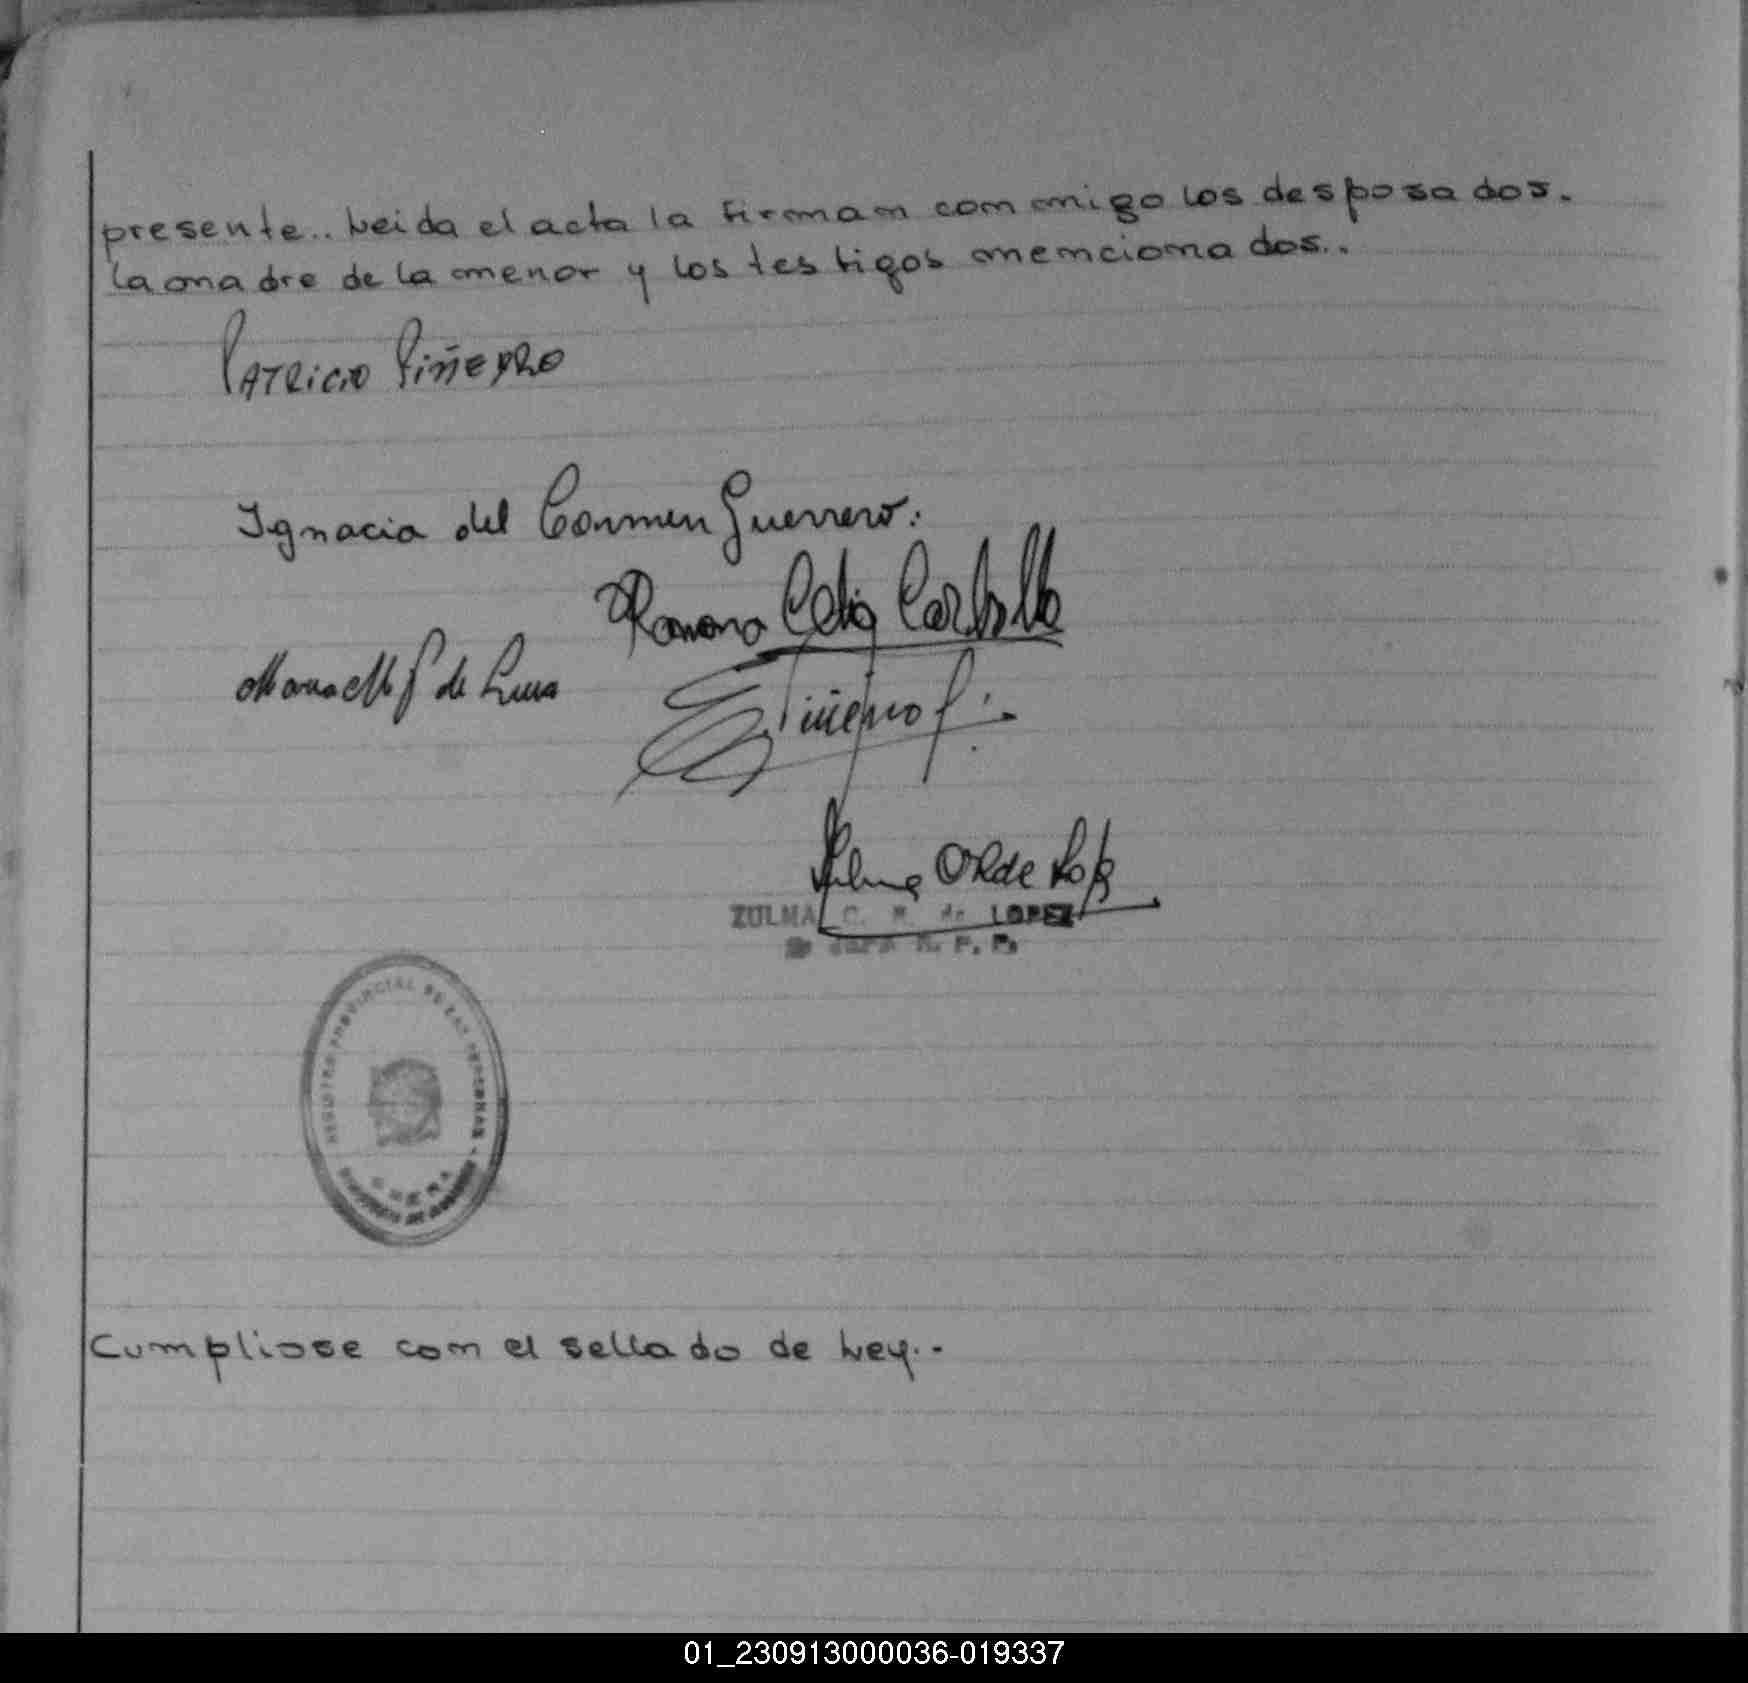 presente.. Leida el acta la firman conmigo los desposados.
la madre de la menor y los testigos mencionados..
PATRICIO PIÑEYRO
Ignacia del Carmen Guerrero.
Ramona Celia Carballo
Maria M P de Luna
Piñeyro
Zulma de Lopez
ZULMA C. R. de LOPEZ
REGISTRO PROVINCIAL DE LAS PERSONAS
Cumpliose con el sellado de Ley..
01_230913000036-019337